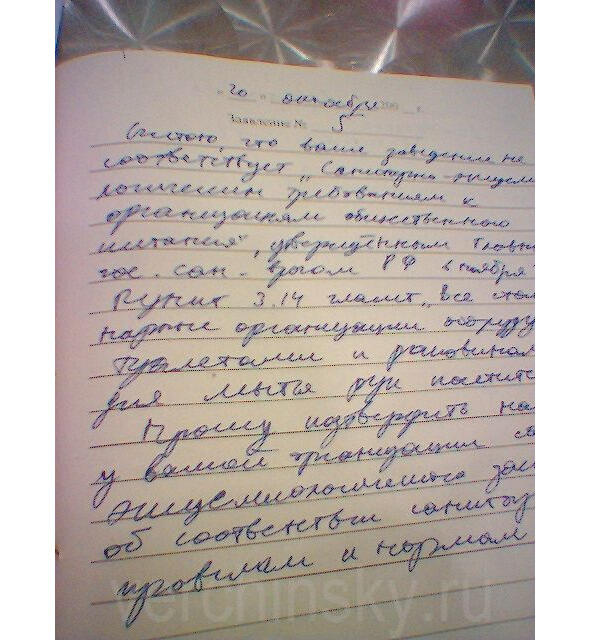 « 20 » октября 200 г.
Заявление № 5
Считаю, что ваше заведение не
соответствует „Санитарно-эпидем
логическим требованиям к
организациям общественного
питания", утверждённым Главн
гос. сан. врачом РФ в ноябре
Пункт 3.14 гласит „все стаци
нарные организации оборуду
туалетами и раковинам
для мытья рук посетите
Прошу подтвердить на
у вашей организации са
эпидемиологического зак
об соответствии санитар
правилам и нормам
verchinsky.ru